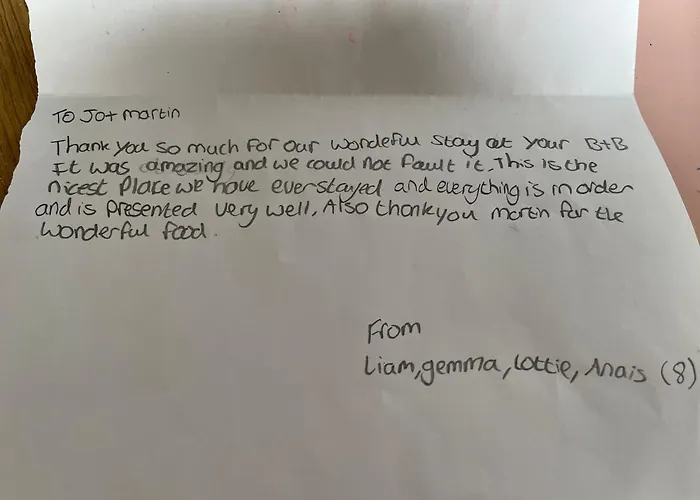 To Jo+ martin
Thank you so much for our wondeful stay at your B+B
It was amazing and we could not fault it. This is the
nicest place we have ever stayed and everything is in order
and is presented very well. Also thankyou martin for the
wonderful food.
From
Liam, gemma, Lottie, Anais (8)